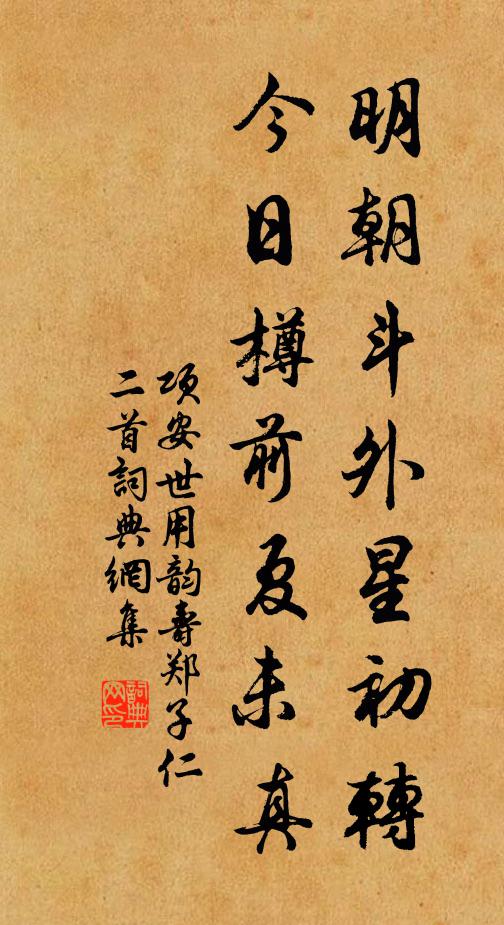 明朝斗外星初轉
今日樽前夏未真
項安世用韵壽郑子仁
二首詞典網集
詞典网印